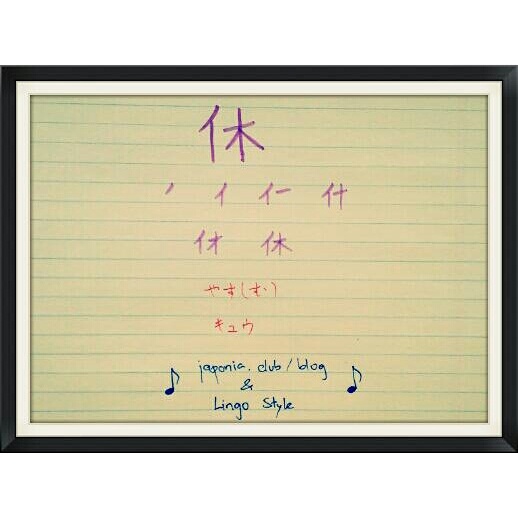 休
ノ イ 仁 什
休 休
やす(む)
キュウ
japonia.club/blog
&
Lingo Style